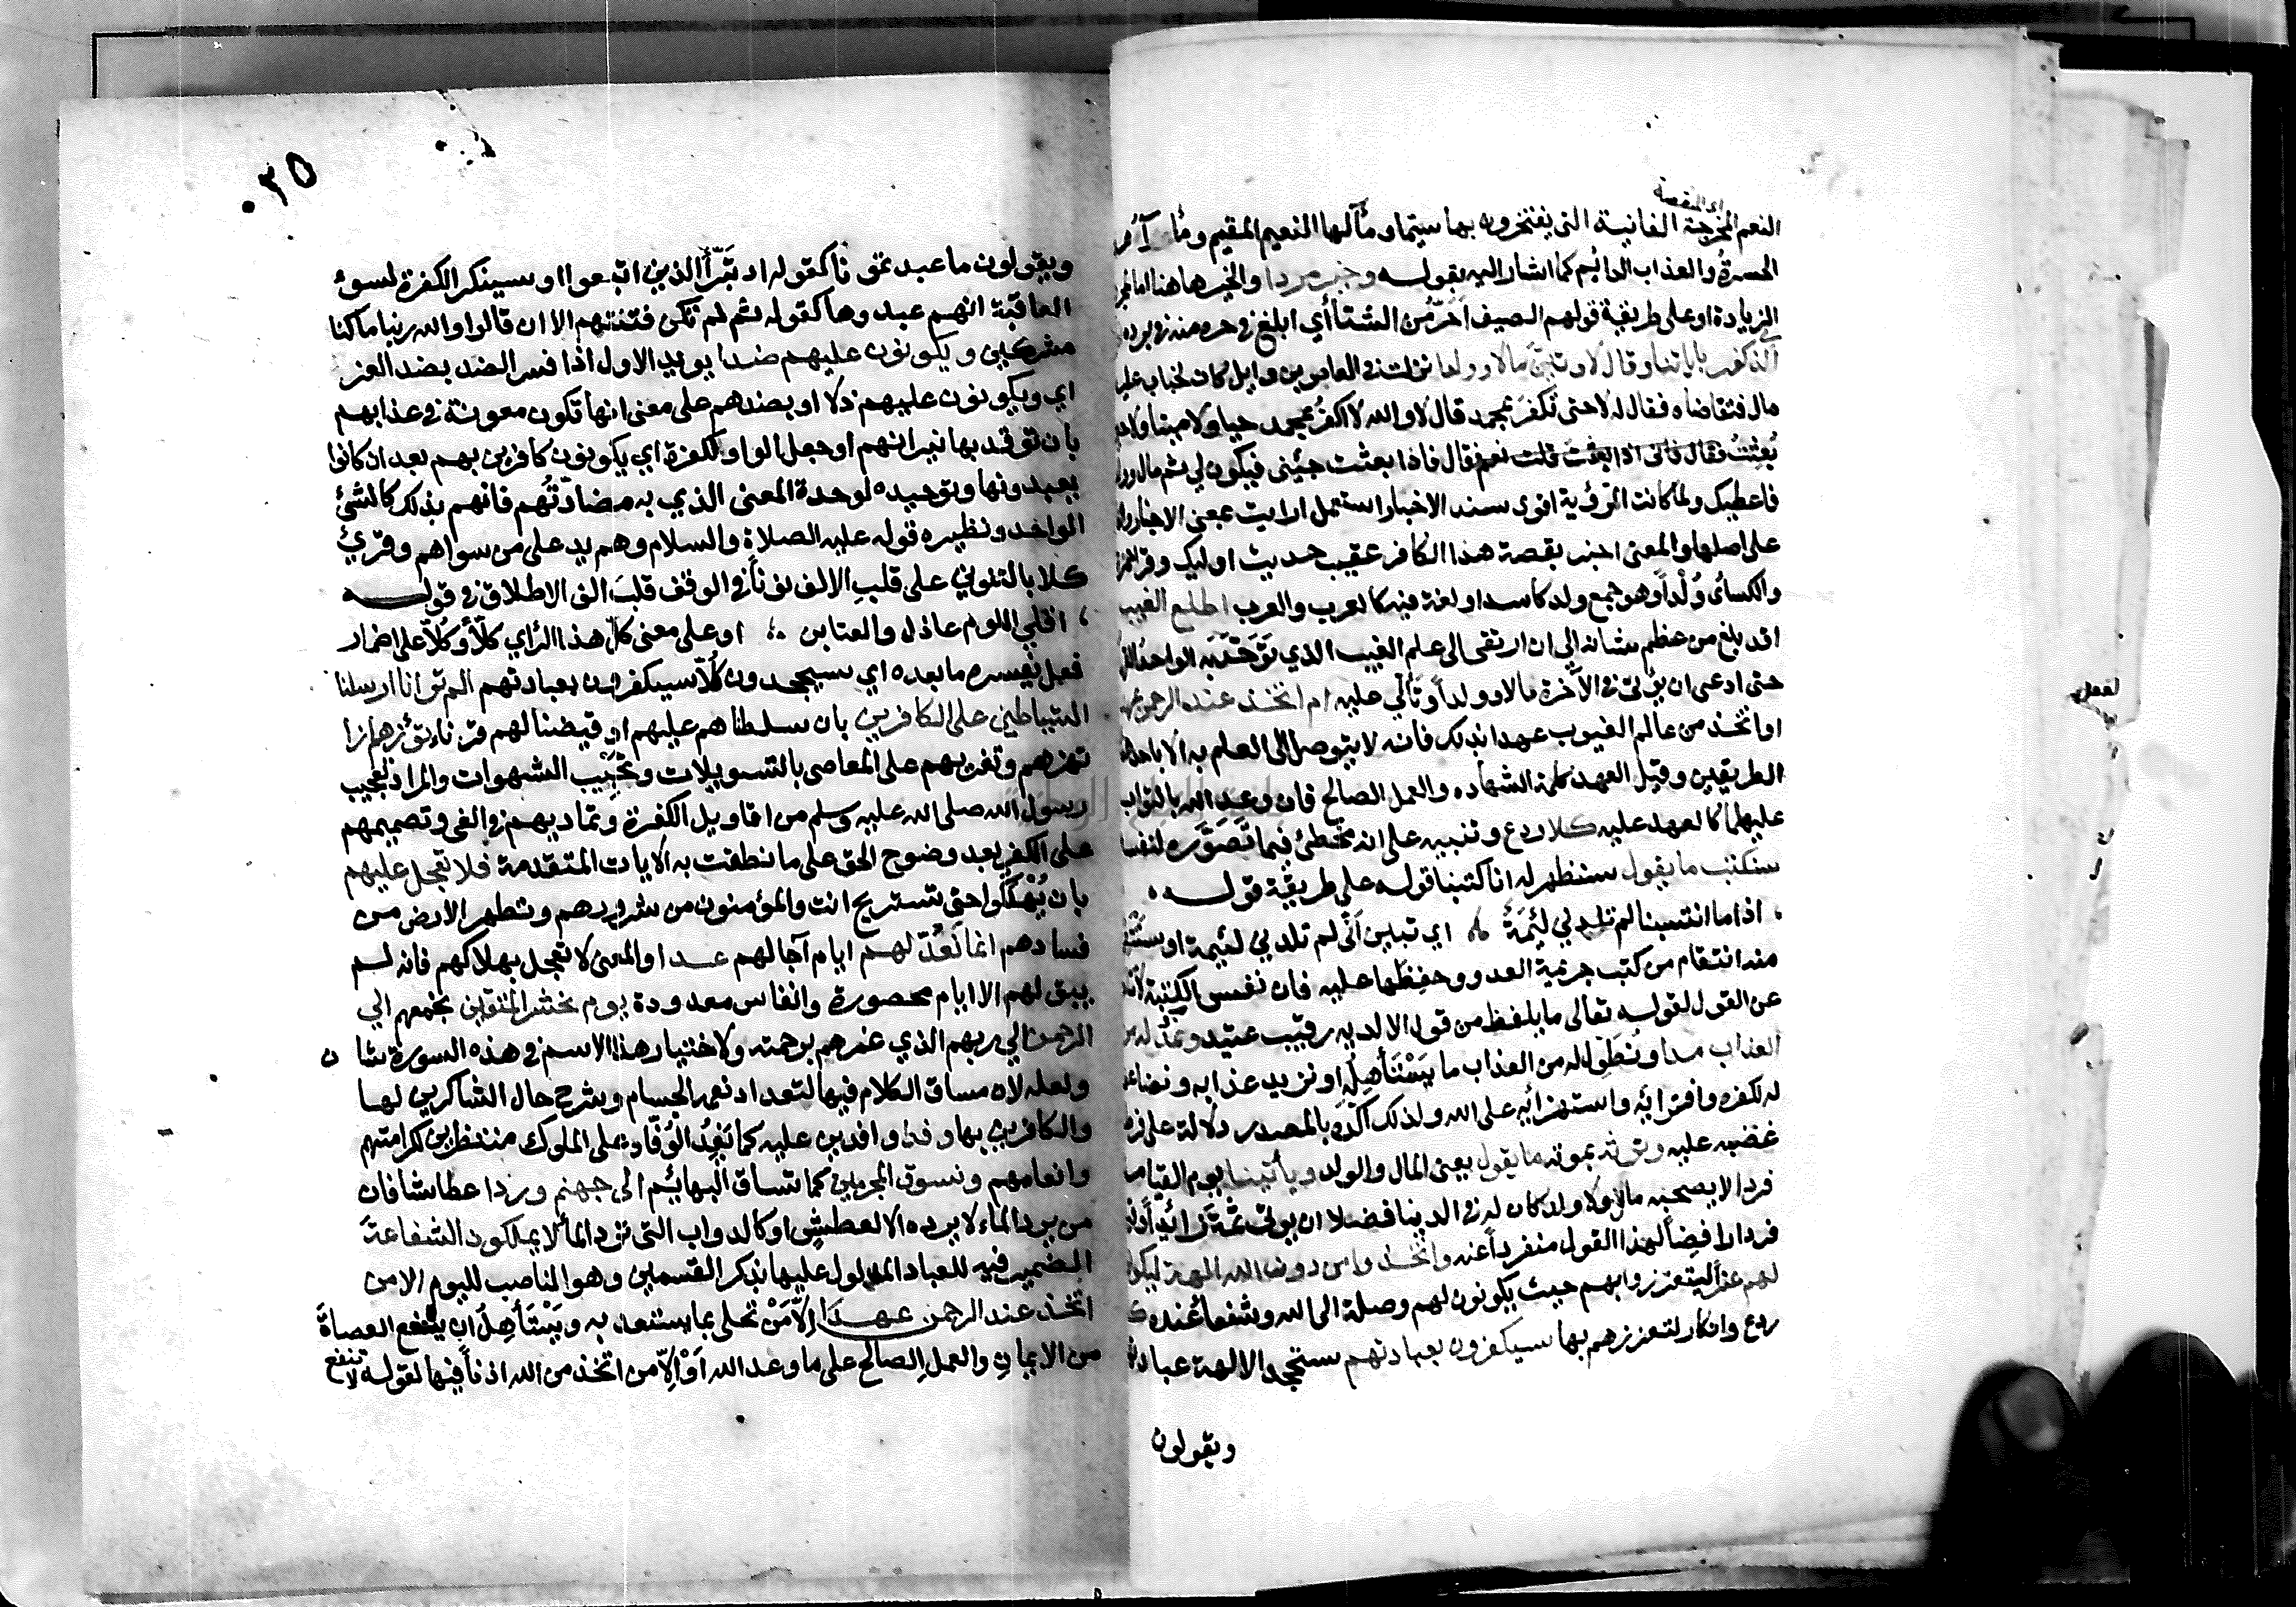 اي المنقصة
النعم المخرجة الفانية التي يفتخرون بها سيما ومآلها النعيم المقيم ومآل
الحسرة والعذاب الدائم كما اشار اليه بقوله وخير مردا والخير هاهنا اما لمجرد
الزيادة او على طريقة قولهم الصيف احَرّ من الشتا أي ابلغ في حره منه في برده
الذي كفر باياتنا وقال لاوتين مالا وولدا نزلت في العاص بن وايل كان لخباب عليه
مال فتقاضاه فقال له لا حتى تكفر بمحمد قال لا والله لا اكفر بمحمد حيا ولا ميتا ولا حين
بُعِثتُ فقال فاني اذا بعثت قلت نعم قال فاذا بعثت جيئني فيكون لي ثم مال وولد
فاعطيك ولما كانت الرؤية اقوى سند الاخبار استعمل ارايت بمعنى الاخبار والفا
على اصلها والمعنى اخبر بقصة هذا الكافر عقيب حديث اوليك وقرا حمزة
والكسائى وُلْداً وهو جمع ولد كاسد او لغة فيه كالعرب والعرب اطلع الغيب
اقد بلغ من عظم شانه الى ان ارتقى الى علم الغيب الذي تَوَحَّدَ به الواحد القهار
حتى ادعى ان يؤتى في الآخرة مالا وولدا وتألي عليه ام اتخذ عند الرحمن عهدا
او اتخذ من عالم الغيوب عهدا بذلك فانه لا يتوصل الى العلم به الا باحد هذين
الطريقين وقيل العهد كلمة الشهاده والعمل الصالح فان وعد الله بالثواب
عليهما كالعهد عليه كلا ردع وتنبيه على انه مخطئ فيما تَصَوَّره لنفسه
سنكتب ما يقول سنظهر له انا كتبنا قوله على طريقة قوله
، اذا ما انتسبنا لم تلدني لئيمَةٌ اي تبين أنّي لم تلدني لئيمة او سننتقم
منه انتقام من كتب جريمة العدو وحفِظَها عليه فان نفس الكتبة لا تتأخر
عن القول لقوله تعالى ما يلفظ من قول الا لديه رقيب عتيد ونمدّ له من
العذاب مدا ونُطوِّل له من العذاب ما يَسْتَأهِلُه او نزيد عذابه ونضاعفه
له لكفره وافترائه واستهزائه على الله ولذلك اكّده بالمصدر دلالة على فرط
غضبه عليه ونرثه بموته ما يقول يعني المال والولد ويأتينا يوم القيامة
فردا لا يصحبه مال ولا ولد كان له في الدينا فضلا ان يؤتى ثمَّة زائداً وقيل
فردا رافِضاً لهذا القول منفرداً عنه واتخذوا من دون الله الهة ليكونوا
لهم عزا ليتعززوا بهم حيث يكونون لهم وصلة الى الله وشفعاً عنده كلا
ردع وانكار لتعززهم بها سيكفرون بعبادتهم ستجحد الالهة عبادتهم
ويقولون
لفعل
٣٥
ويقولون ما عبدتمونا كقوله اذ تَبَرَّأَ الذين اتبعوا او سينكر الكفرة لسوء
العاقبة انهم عبدوها كقوله ثم لم تكن فتنتهم الا ان قالوا والله ربنا ما كنا
مشركين ويكونون عليهم ضدا يويد الاول اذا فسر الضد بضد العز
اي ويكونون عليهم ذلا او بضدهم على معنى انها تكون معونة في عذابهم
بان توقد بها نيرانهم او جعل الواو للكفرة اي يكونون كافرين بهم بعد ان كانوا
يعبدونها وتوحيده لوحدة المعنى الذي به مضادّتُهم فانهم بذلك كالشئ
الواحد ونظيره قوله عليه الصلاة والسلام وهم يد على من سواهم وقرئ
كلا بالتنوين على قلب الالف نوناً في الوقف قلبَ الف الاطلاق في قوله
، اقلي اللوم عاذل والعتابن ، او على معنى كلّ هذا الراي كلاّ او كُلاّ على اضمار
فعل يفسره ما بعده اي سيجحدون كُلاّ سيكفرون بعبادتهم الم تر انا ارسلنا
الشياطين على الكافرين بان سلطناهم عليهم او قيضنا لهم قرناء تؤزهم ازا
تهزهم وتغريهم على المعاصي بالتسويلات وتحبيب الشهوات والمراد تعجيب
رسول الله صلى الله عليه وسلم من اقاويل الكفرة وتماديهم في الغي وتصميمهم
على الكفر بعد وضوح الحق على ما نطقت به الايات المتقدمة فلا تعجل عليهم
بان يُهْلَكوا حتى تستريح انت والمؤمنون من شرورهم وتطهر الارض من
فسادهم انما نَعُدّ لهم ايام آجالهم عدا والمعنى لا تعجل بهلاكهم فانه لم
يبق لهم الا ايام محصورة وانفاس معدودة يوم نحشر المتقين نجمعهم الي
الرحمن الي ربهم الذي غمرهم برحمته ولاختيار هذا الاسم في هذه السورة شان
ولعله لان مساق الكلام فيها لتعداد نعمه الجسام وشرح حال الشاكرين لها
والكافرين بها وفدا وافدين عليه كما يَفِدُ الوُفّاد على الملوك منتظرين لكرامتهم
وانعامهم ونسوق المجرمين كما تساق البهائم الى جهنم وردا عطاشا فان
من يرد الماء لا يرده الا لعطشٍ او كالدواب التي ترد المأ لا يملكون الشفاعة
الضمير فيه للعباد المدلول عليها بذكر القسمين وهو الناصب لليوم الا من
اتخذ عند الرحمن عهدا إلاّ مَنْ تحلى بما يستعد به ويَسْتَأهِلُ ان يشفع العصاةَ
من الايمانِ والعملِ الصالح على ما وعد الله اَوْ اِلّا من اتخذ من الله اذناً فيها لقوله لا تنفع